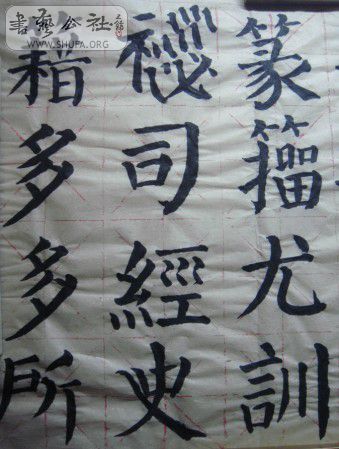 書藝公社
WWW.SHUFA.ORG
篆籕尤訓
祕司經史
籍多多所